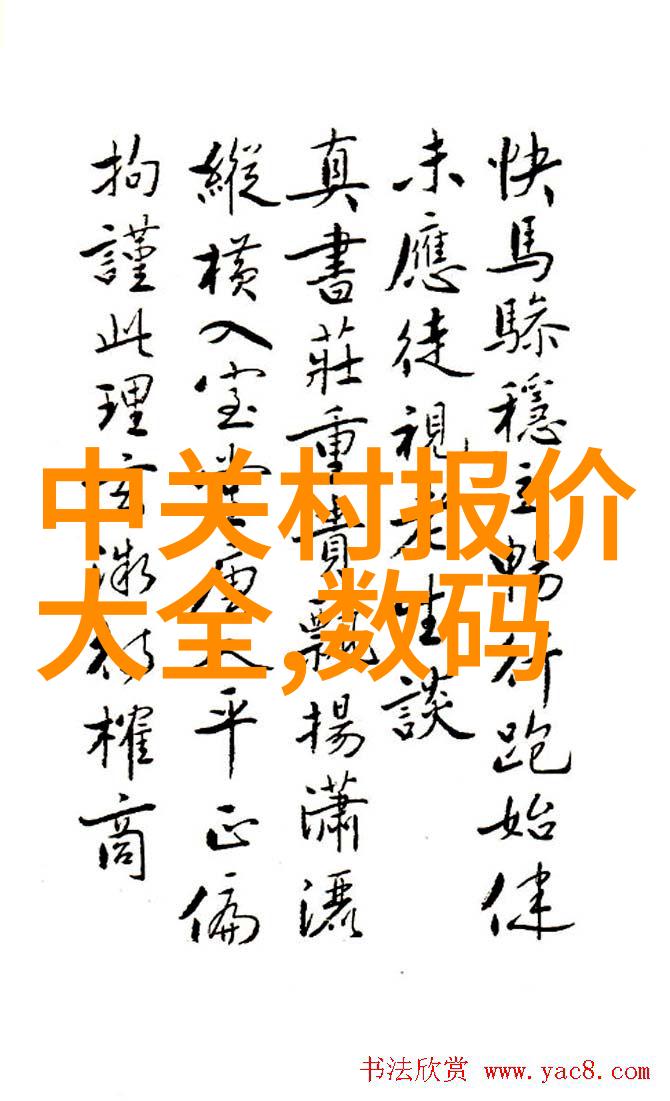 快馬穩立行跑始健
未應徒視老生談
真書莊重貴飄揚瀟灑
縱橫入室平正偏
拘謹此理玄微榷商
中关村报价
大全,数码
书法欣赏 www.yac8.com